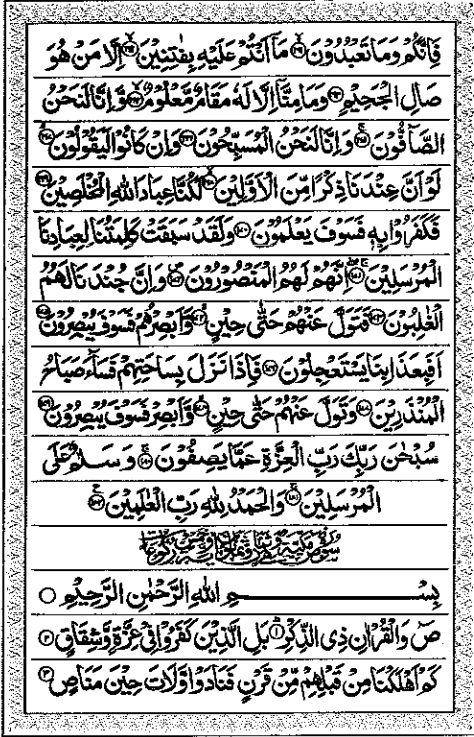 فَاِنَّكُمْ وَمَا تَعْبُدُوْنَ ۙ۝۱۶۱ مَاۤ اَنْتُمْ عَلَيْهِ بِفٰتِنِيْنَ ۙ۝۱۶۲ اِلَّا مَنْ هُوَ
صَالِ الْجَحِيْمِ ۝۱۶۳ وَمَا مِنَّاۤ اِلَّا لَهٗ مَقَامٌ مَّعْلُوْمٌ ۙ۝۱۶۴ وَّاِنَّا لَنَحْنُ
الصَّآفُّوْنَ ۚ۝۱۶۵ وَاِنَّا لَنَحْنُ الْمُسَبِّحُوْنَ ۝۱۶۶ وَاِنْ كَانُوْا لَيَقُوْلُوْنَ ۙ۝۱۶۷
لَوْ اَنَّ عِنْدَنَا ذِكْرًا مِّنَ الْاَوَّلِيْنَ ۙ۝۱۶۸ لَكُنَّا عِبَادَ اللّٰهِ الْمُخْلَصِيْنَ ۝۱۶۹
فَكَفَرُوْا بِهٖ فَسَوْفَ يَعْلَمُوْنَ ۝۱۷۰ وَلَقَدْ سَبَقَتْ كَلِمَتُنَا لِعِبَادِنَا
الْمُرْسَلِيْنَ ۚۖ۝۱۷۱ اِنَّهُمْ لَهُمُ الْمَنْصُوْرُوْنَ ۪۝۱۷۲ وَاِنَّ جُنْدَنَا لَهُمُ
الْغٰلِبُوْنَ ۝۱۷۳ فَتَوَلَّ عَنْهُمْ حَتّٰى حِيْنٍ ۙ۝۱۷۴ وَّاَبْصِرْهُمْ فَسَوْفَ يُبْصِرُوْنَ ۝۱۷۵
اَفَبِعَذَابِنَا يَسْتَعْجِلُوْنَ ۝۱۷۶ فَاِذَا نَزَلَ بِسَاحَتِهِمْ فَسَآءَ صَبَاحُ
الْمُنْذَرِيْنَ ۝۱۷۷ وَتَوَلَّ عَنْهُمْ حَتّٰى حِيْنٍ ۙ۝۱۷۸ وَّاَبْصِرْ فَسَوْفَ يُبْصِرُوْنَ ۝۱۷۹
سُبْحٰنَ رَبِّكَ رَبِّ الْعِزَّةِ عَمَّا يَصِفُوْنَ ۚ۝۱۸۰ وَسَلٰمٌ عَلَى
الْمُرْسَلِيْنَ ۚ۝۱۸۱ وَالْحَمْدُ لِلّٰهِ رَبِّ الْعٰلَمِيْنَ ۝۱۸۲
بِسْمِ اللّٰهِ الرَّحْمٰنِ الرَّحِيْمِ ۝
صٓ وَالْقُرْاٰنِ ذِى الذِّكْرِ ؕ۝۱ بَلِ الَّذِيْنَ كَفَرُوْا فِيْ عِزَّةٍ وَّشِقَاقٍ ۝۲
كَمْ اَهْلَكْنَا مِنْ قَبْلِهِمْ مِّنْ قَرْنٍ فَنَادَوْا وَّلَاتَ حِيْنَ مَنَاصٍ ۝۳